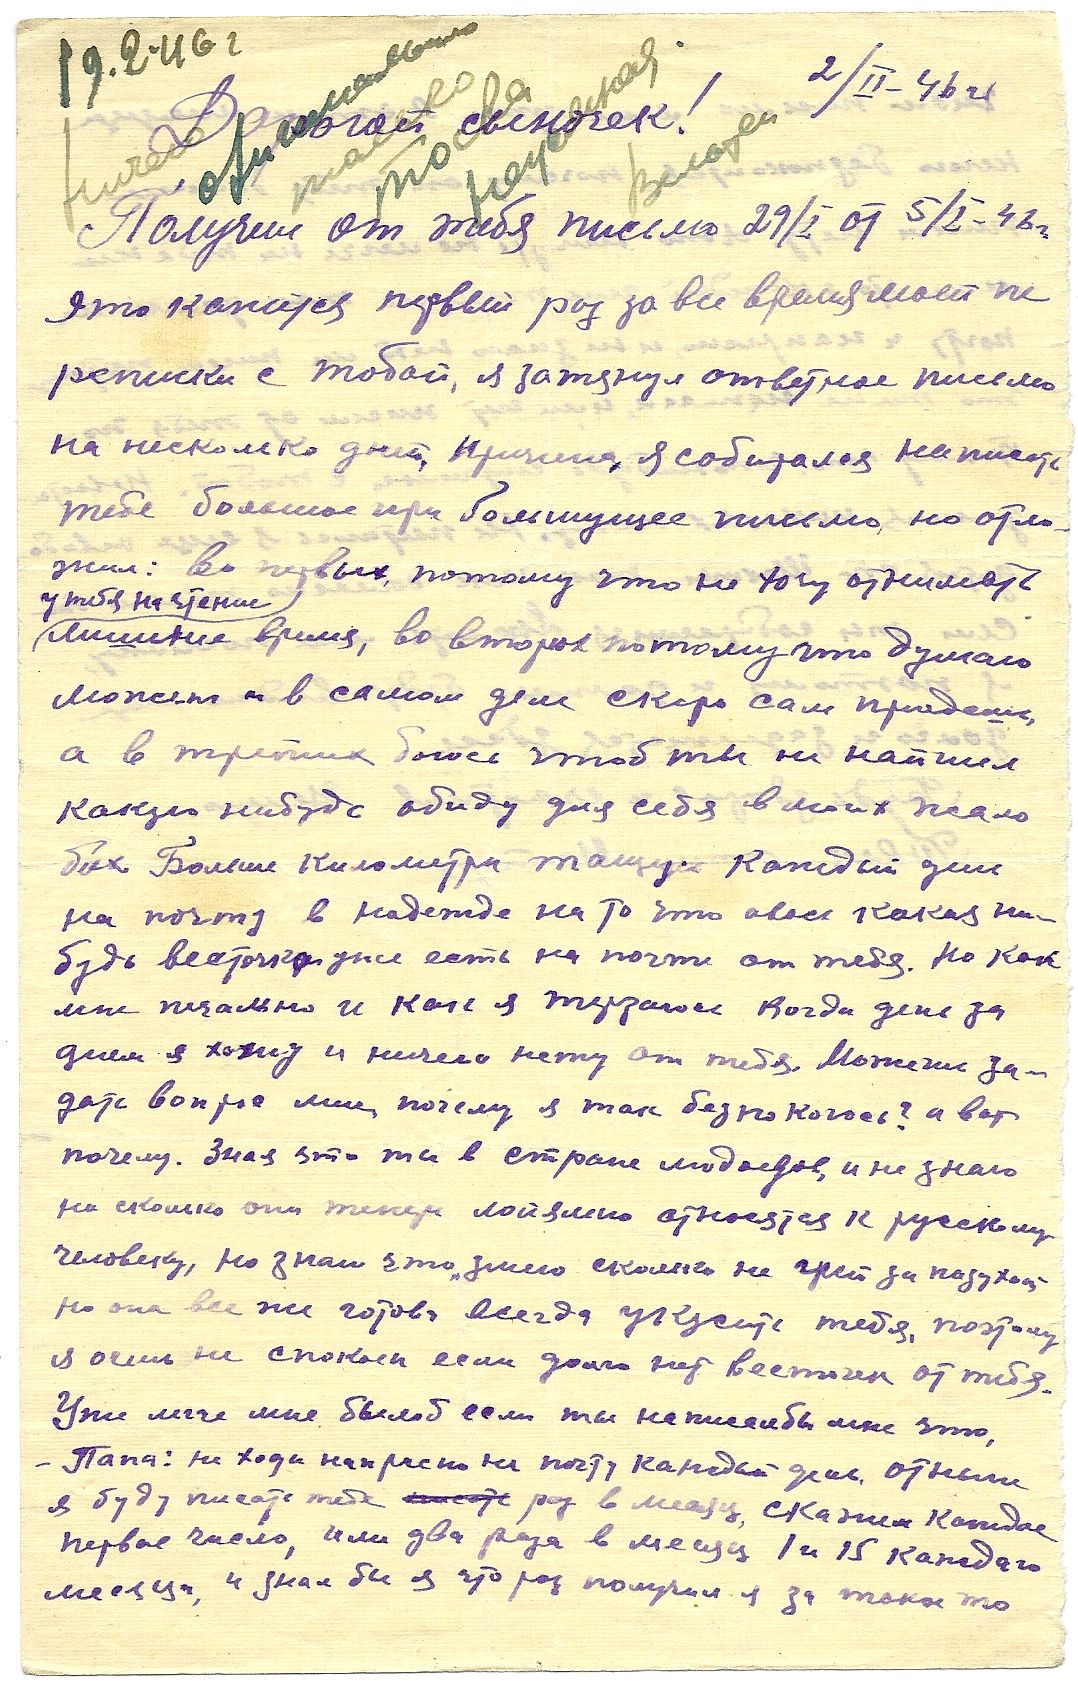 19.2-46 г
2/II-46 г
Дорогой сыночек!
Получил от тебя письмо 29/I от 5/I-46 г
это кажится первый раз за все время моей пе
реписки с тобой, я затянул ответное письмо
на несколко дней, Причина, я собирался написать
тебе большое при большущее письмо, но отло-
жил: во первых, потому что не хочу отнимать
у тебя на чтение
лишние время, во вторых потому что думаю
может и в самом деле скоро сам придеш,
а в третих боюсь чтоб ты не нашел
какую нибудь обиду для себя в моих жало
бах Больше километра тащусь каждый день
на почту в надежде на то что авось какая ни-
будь весточка уже есть на почте от тебя. Но как
мне печально и как я терзаюсь когда день за
днем я хожу и ничего нету от тебя. Можеш за-
дать вопрос мне, почему я так безпокоюсь? и вот
почему. Зная что ты в стране людоедов, и не знаю
на сколько они теперь лойяльно относятся к русскому
человеку, но знаю что „змею сколько не грей за пазухой
но она все же готова всегда укусить тебя, поэтому
я очень не спокоен если долго нет весточек от тебя.
Уже легче мне былоб если ты написалбы мне что,
- Папа: не ходи напрасно на почту каждый день. отныне
я буду писать тебе писать раз в месяц, скажем каждое
первое число, или два раза в месяц 1 и 15 каждаго
месяца, и знал бы я что раз получил я за такое то